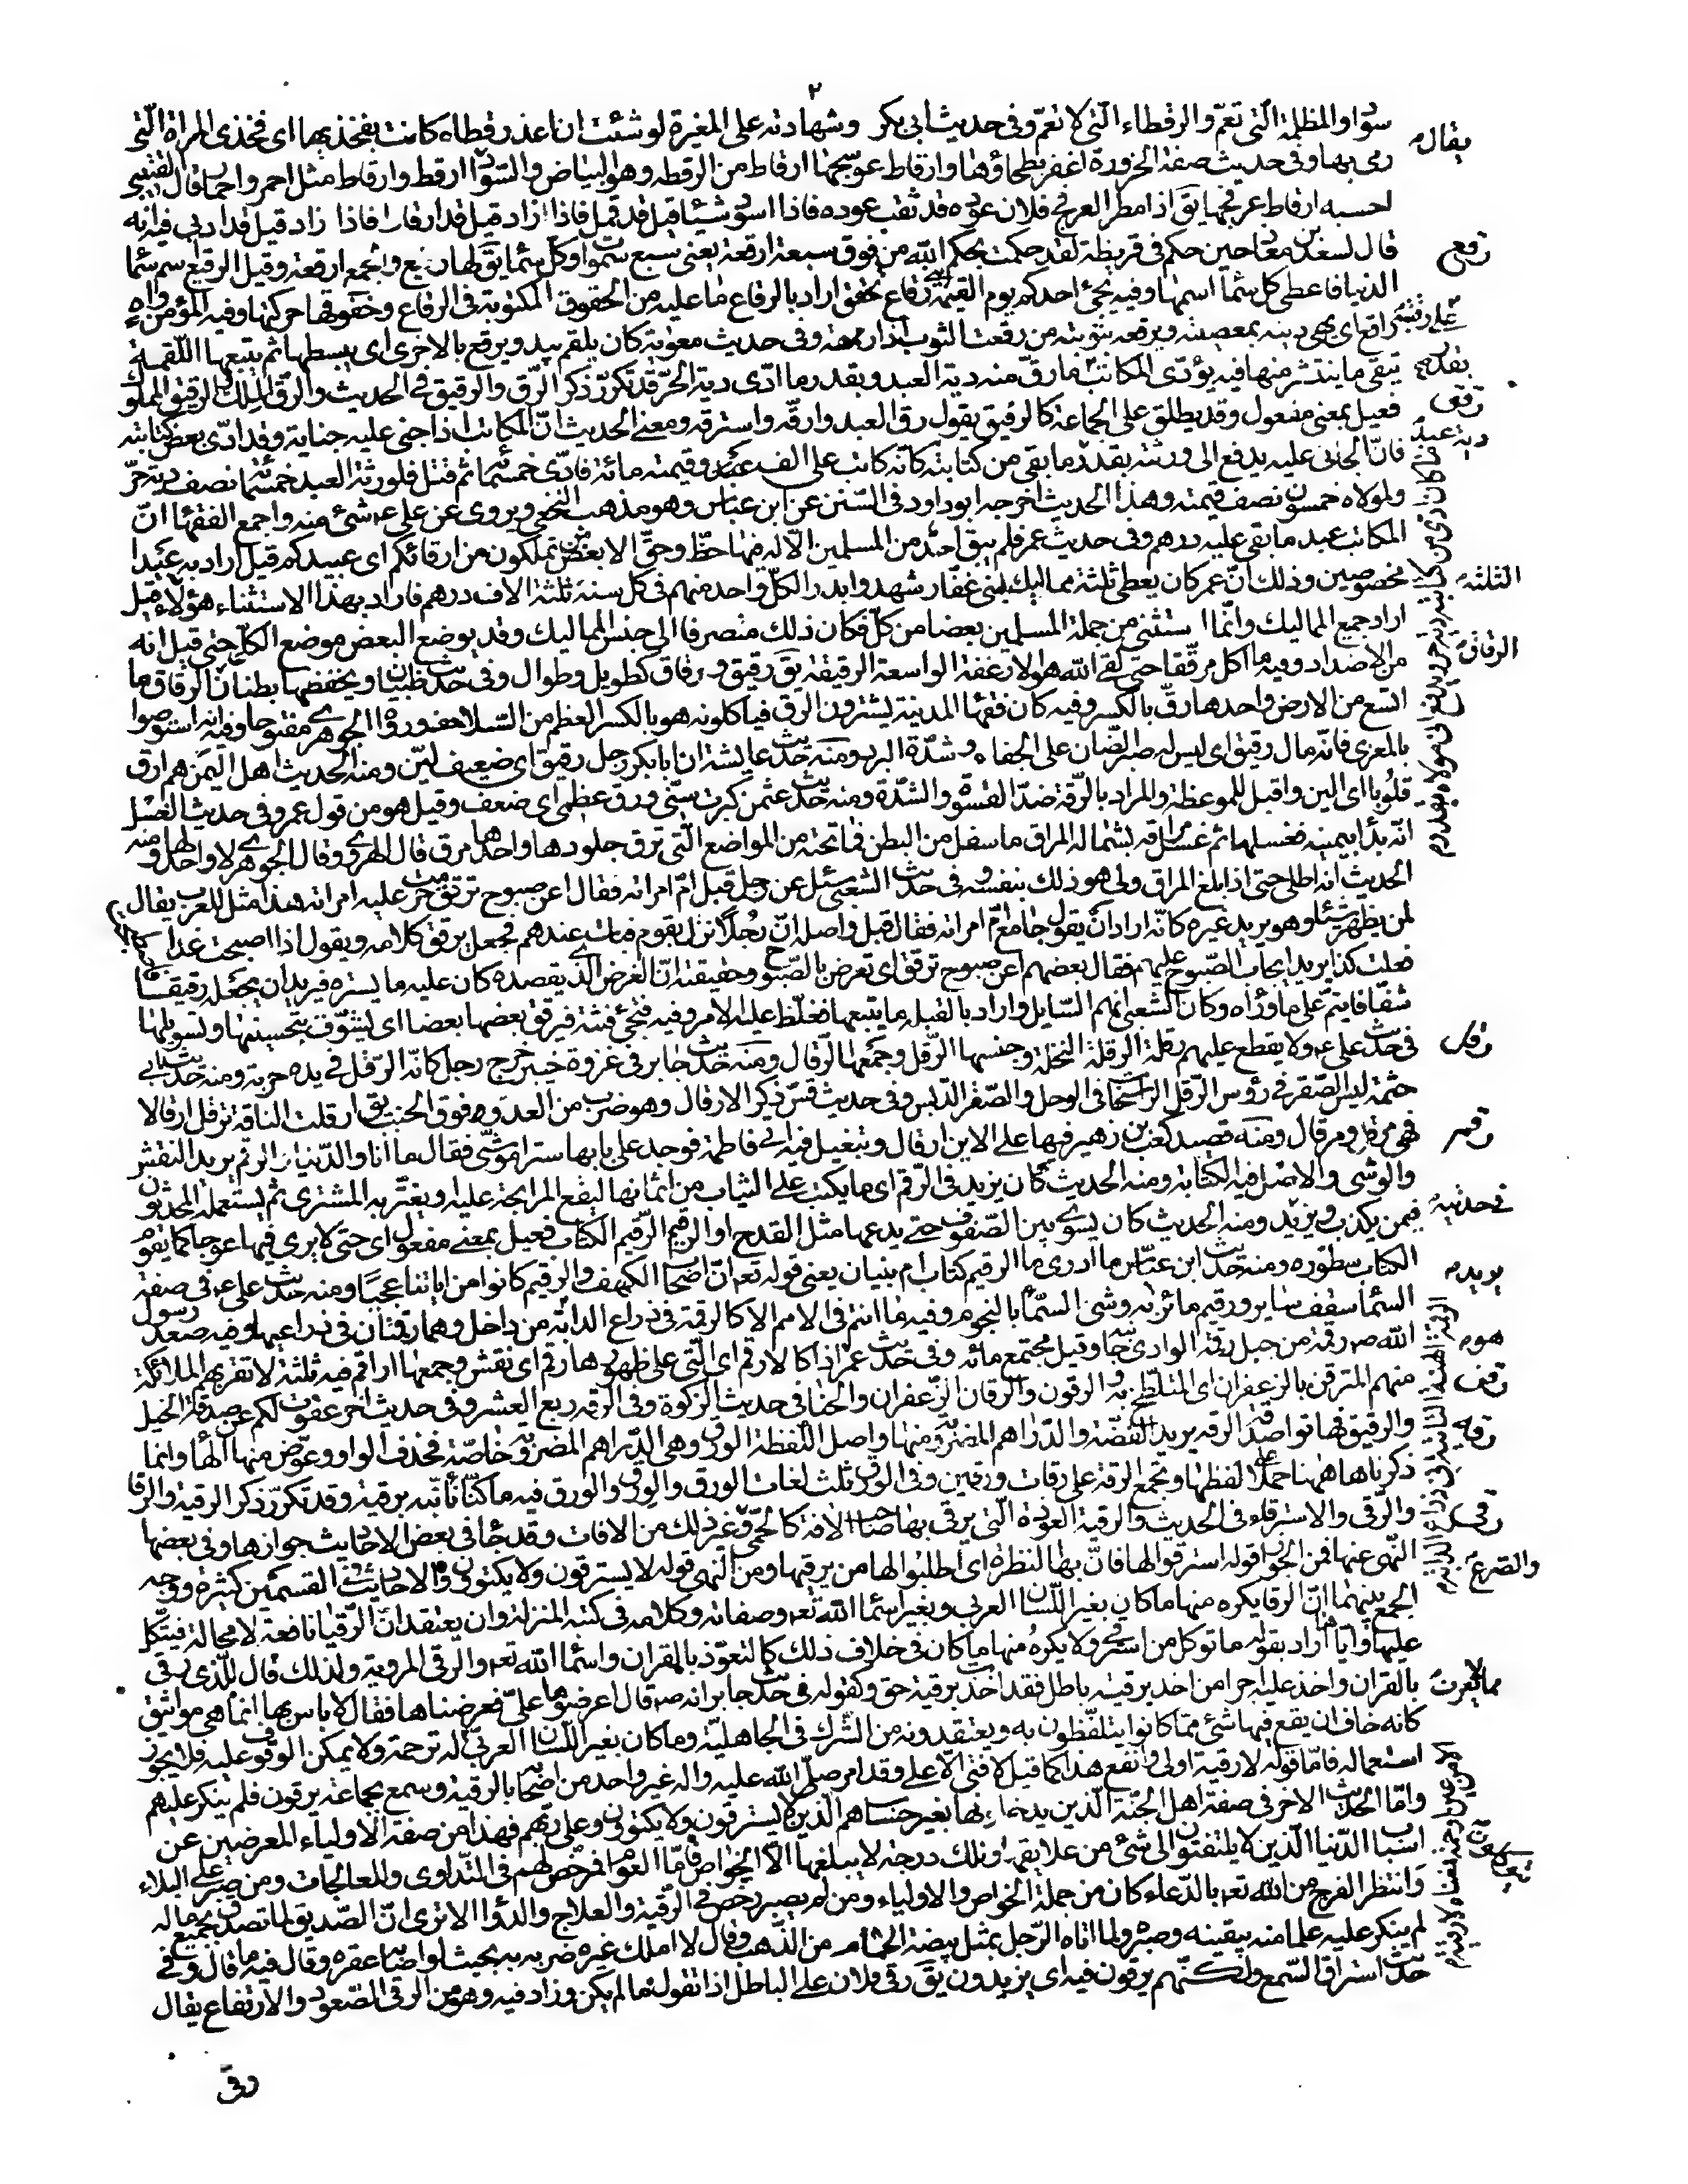 ٢
سوّاد والمظلمة الّتى تعمّ والرقطاء الّتى لا تعمّ وفى حديث ابى بكر وشهادته على المغيرة لو شئت ان اعد رقطاه كانت بفخذيها اى فخذى المراة الّتى
رمى بها وفى حديث صفة الحزورة اغفر بطحاؤها وارقاط عوسجها ارقاط من الرقطه وهو البياض والسّواد ارقط وارقاط مثل احمر واحمار قال القتيبى
احسبه ارقاط عرفجها يق اذا مطر العرفج فلان عوده قد ثقب عوده فاذا اسودّ شيئا قيل قد قمل فاذا زاد قيل قد ارقاط فاذا زاد قيل قد ادبى فيه انه
رقع
قال لسعد بن معاذ حين حكم فى قريظة لقد حكمت بحكم الله من فوق سبعة ارقعة يعنى سبع سموات وكلّ سما يق لها رقيع والجمع ارقعة وقيل الرقيع سم سما
الدنيا فاعطى كل سما اسمها وفيه يجئ احدكم يوم القيمة رقاع تخفق اراد بالرقاع ما عليه من الحقوق المكتوبة فى الرقاع وخفوقها حركتها وفيه المؤمن واهٍ
راقع اى يهى دينه بمعصيته ويرقعه بتوبته من رقعت الثوب اذا رممته وفى حديث معوية كان يلقم بيد ويرقع بالاخرى اى يبسطها ثم يتبعها اللّقمة
يتقى ما ينتثر منها فيه يؤدّى المكاتب ما رقّ منه دية العبد وبقدر ما ادّى دية الحرّ قد تكرّر ذكر الرّق والرقيق فى الحديث والرّق الملك والرقيق المملوك
رقق
فعيل بمعنى مفعول وقد يطلق على الجماعة كالرفيق يقول رق العبد وارقّه واسترقه ومعنى الحديث انّ المكاتب اذا جنى عليه جناية وقد ادّى بعض كتابته
فانّ الجانى عليه يدفع الى ورثته بقدر ما بقى من كتابته كانّه كاتب على الف وقيمته مائة فادّى خمسمائة ثم قتل فلورثة العبد خمسمائة نصف دية حرّ
ولمولاه خمسون نصف قيمته وهذا الحديث اخرجه ابو داود فى السّنن عن ابن عبّاس وهو مذهب النّخعى ويروى عن على ع شئ منه واجمع الفقها انّ
المكاتب عبد ما بقى عليه درهم وفى حديث عمر فلم يبق احد من المسلمين الّا له فيها حظّ وحقّ الا بعض من تملكون من ارقائكم اى عبيدكم قيل اراد به عبيدا
مخصوصين وذلك انّ عمر كان يعطى ثلثة مماليك لبنى غفار شهدوا بدرا لكلّ واحد منهم فى كل سنة ثلثة الاف درهم فاراد بهذا الاستثناء هؤلاء وقيل
اراد جميع المماليك وانّما استثنى من جملة المسلمين بعضا من كلّ فكان ذلك منصرفا الى جنس المماليك وقد يوضع البعض موضع الكلّ حتى قيل انه
من الاضداد وفيه ما اكل مرقّقا حتى لقى الله هو الارغفة الواسعة الرقيقة يق رقيق ورقاق كطويل وطوال وفى حديث ظبيان ويخفضها بطنان الرقاق ما
اتسع من الارض واحدها رقّ بالكسر وفيه كان فقها المدينة يشترون الرّق فياكلونه هو بالكسر العظم من السّلاحف ورواه الجوهرى مفتوحا وفيه استوصوا
بالمعزى فانّه مال رقيق اى ليس له صبر الضّان على الجفاء وشدّة البرد ومنه حديث عايشة ان ابا بكر رجل رقيق اى ضعيف ليّن ومنه الحديث اهل اليمن هم ارق
قلوبا اى الين واقبل للموعظة والمراد بالرّقة ضدّ القسوة والشدّة ومنه حديث عثمن كبرت سنّى ورق عظمى اى ضعف وقيل هو من قول عمر وفى حديث الغسل
انه بدا بيمينه فغسلها ثم غسل مراقه بشماله المراق ما سفل من البطن فما تحته من المواضع الّتى ترق جلودها واحدها مرق قال الهروى وقال الجوهرى لا واحد لها ومنه
الحديث انه اطلى حتى اذا بلغ المراق ولى هو ذلك بنفسه وفى حديث الشعبى سئل عن رجل قبل امّ امراته فقال اعن صبوح ترقق حرمت عليه امراته هذا مثل للعرب يقال
لمن يظهر شيئا وهو يريد غيره كانّه اراد ان يقول جامع امّ امراته فقال قبل واصله انّ رجلا نزل بقوم فبات عندهم فجعل يرقق كلامه ويقول اذا اصبحت غدا
فعلت كذا يريد ايجاب الصّبوح عليهم فقال بعضهم اعن صبوح ترقق اى تعرض بالصّبوح وحقيقته انّ الغرض الّذى يقصده كان عليه ما يستره فيريد ان يجعله رقيقا
شفّافا ينمّ على ما وراه وكان الشعبى اتهم السّايل واراد بالقبلة ما يتبعها فغلّظ عليه الامر وفيه فتجئ فتنة فيرقق بعضها بعضا اى يشوّق بتحسينها وتسويلها
رقل
فى حديث على ع ولا يقطع عليهم رقلة الرقلة النخلة وجنسها الرّقل وجمعها الرّقال ومنه حديث جابر فى غزوة خيبر خرج رجل كانّه الرّقل فى يده حربة ومنه حديث ابى
حثمة ليس الصّقر فى رؤس الرّقل الراسخات فى الوحل والصّقر الدّبس وفى حديث قسّ ذكر الارقال وهو ضرب من العدو فوق الخبب يق ارقلت الناقة ترقل ارقالا
فهى مرقل ومرقال ومنه قصيد كعب بن زهير فيها على الاين ارقال وتبغيل فيه اتى فاطمة فوجد على بابها سترا موشّى فقال ما انا والدّنيا والرقم يريد النقش
رقم
والوشى والاصل فيه الكتابة ومنه الحديث كان يزيد فى الرّقم اى ما يكتب على الثياب من اثمانها ليقع المرابحة عليه او يغترّ به المشترى ثم يستعمله المحدّثون
فيمن يكذب ويزيد ومنه الحديث كان يسوّى بين الصّفوف حتى يدعها مثل القدح او الرقيم الرّقيم الكتاب فعيل بمعنى مفعول اى حتى لا يرى فيها عوجا كما يقوم
الكتاب سطوره ومنه حديث ابن عبّاس ما ادرى ما الرقيم كتاب ام بنيان يعنى قوله تعه انّ اصحاب الكهف والرقيم كانوا من اياتنا عجبا ومنه حديث على ع فى صفة
السّما سقف ساير ورقيم مائر يريد به وشى السّما بالنجوم وفيه ما انتم فى الامم الا كالرقمة فى ذراع الدابّة من داخل وهما رقمتان فى ذراعيها وفيه صعد رسول
الله صه رقمة من جبل رقمة الوادى جانبه وقيل مجتمع مائه وفى حديث عمر اذا كالارقم اى الّتى على ظهرها رقم اى نقش وجمعها اراقم فيه ثلثة لا تقربهم الملائكة
رقن
منهم المترقن بالزعفران اى المتلطّخ به والرقون والرّقان الزّعفران والحنا فى حديث الزكوة وفى الرّقه ربع العشر وفى حديث اخر عفوت لكم عن صدقة الخيل
رقه
والرقيق فهاتوا صدقة الرّقه يريد الفضّة والدّراهم المضروبة منها واصل اللفظة الورق وهى الدّراهم المضروبة خاصّة فحذفت الواو وعوّض منها الها وانما
ذكرناها ههنا حملا على لفظها وتجمع الرقة على رقات ورقين وفى الورق ثلث لغات الورق والورق والورق فيه ما كنّا نأبنه برقية وقد تكرّر ذكر الرقية والرقا
رقى
والرّقى والاسترقاء فى الحديث والرقية العوذة الّتى يرقى بها صاحب الافة كالحمّى وغير ذلك من الافات وقد جا فى بعض الاحاديث جوازها وفى بعضها
النّهى عنها فمن الجواز قوله استرقوا لها فانّ بها النظرة اى اطلبوا لها من يرقيها ومن النّهى قوله لا يسترقون ولا يكتوون والاحاديث فى القسمين كثيرة ووجه
الجمع بينهما انّ الرقا يكره منها ما كان بغير اللّسان العربى وبغير اسما الله تعه وصفاته وكلامه فى كتبه المنزلة وان يعتقد انّ الرّقيا نافعة لا محالة فيتّكل
عليها وايّاها اراد بقوله ما توكل من استرقى ولا يكره منها ما كان فى خلاف ذلك كالتعوّذ بالقران واسما الله تعه والرقى المروية ولذلك قال للّذى رقى
بالقران واخذ عليه اجرا من اخذ برقية باطل فقد اخذت برقية حق وكقوله فى حديث جابر انه صه قال اعرضوها علىّ فعرضناها فقال لا باس بها انما هى مواثيق
كانه خاف ان يقع فيها شئ ممّا كانوا يتلفّظون به ويعتقدونه من الشّرك فى الجاهليّة وما كان بغير اللّسان العربىّ له ترجمة ولا يمكن الوقوف عليه فلا يجوز
استعماله فامّا قوله لا رقية اولى وانفع هذا كما قيل لا فتى الّا على وقد امر صلّى الله عليه واله غير واحد من اصحابه بالرقية وسمع بجماعة يرقون فلم ينكر عليهم
وامّا الحديث الاخر فى صفة اهل الجنّة الّذين يدخلونها بغير حساب هم الّذين لا يسترقون ولا يكتوون وعلى ربّهم فهذا من صفة الاولياء المعرضين عن
اسباب الدّنيا الّذين لا يلتفتون الى شئ من علايقها وتلك درجة لا يبلغها الّا الخواص فامّا العوام فرخّص لهم فى التّداوى والمعالجات ومن صبر على البلاء
وانتظر الفرج من الله تعه بالدّعاء كان من جملة الخواص والاولياء ومن لم يصبر رخص فى الرّقية والعلاج والدوا الا ترى انّ الصّديق لما تصدّق بجميع ماله
لم ينكر عليه علما منه بيقينه وصبره ولما اتاه الرّجل بمثل بيضة الحمام من الذّهب وقال لا املك غيره ضربه به بحيث لو اصابه عقره وقال فيه ما قال وفى
حديث استراق السّمع ولكنّهم يرقون فيه اى يزيدون يق رقى فلان على الباطل اذا تقوّل ما لم يكن وزاد فيه وهو من الرقى الصّعود والارتفاع يقال
رقى